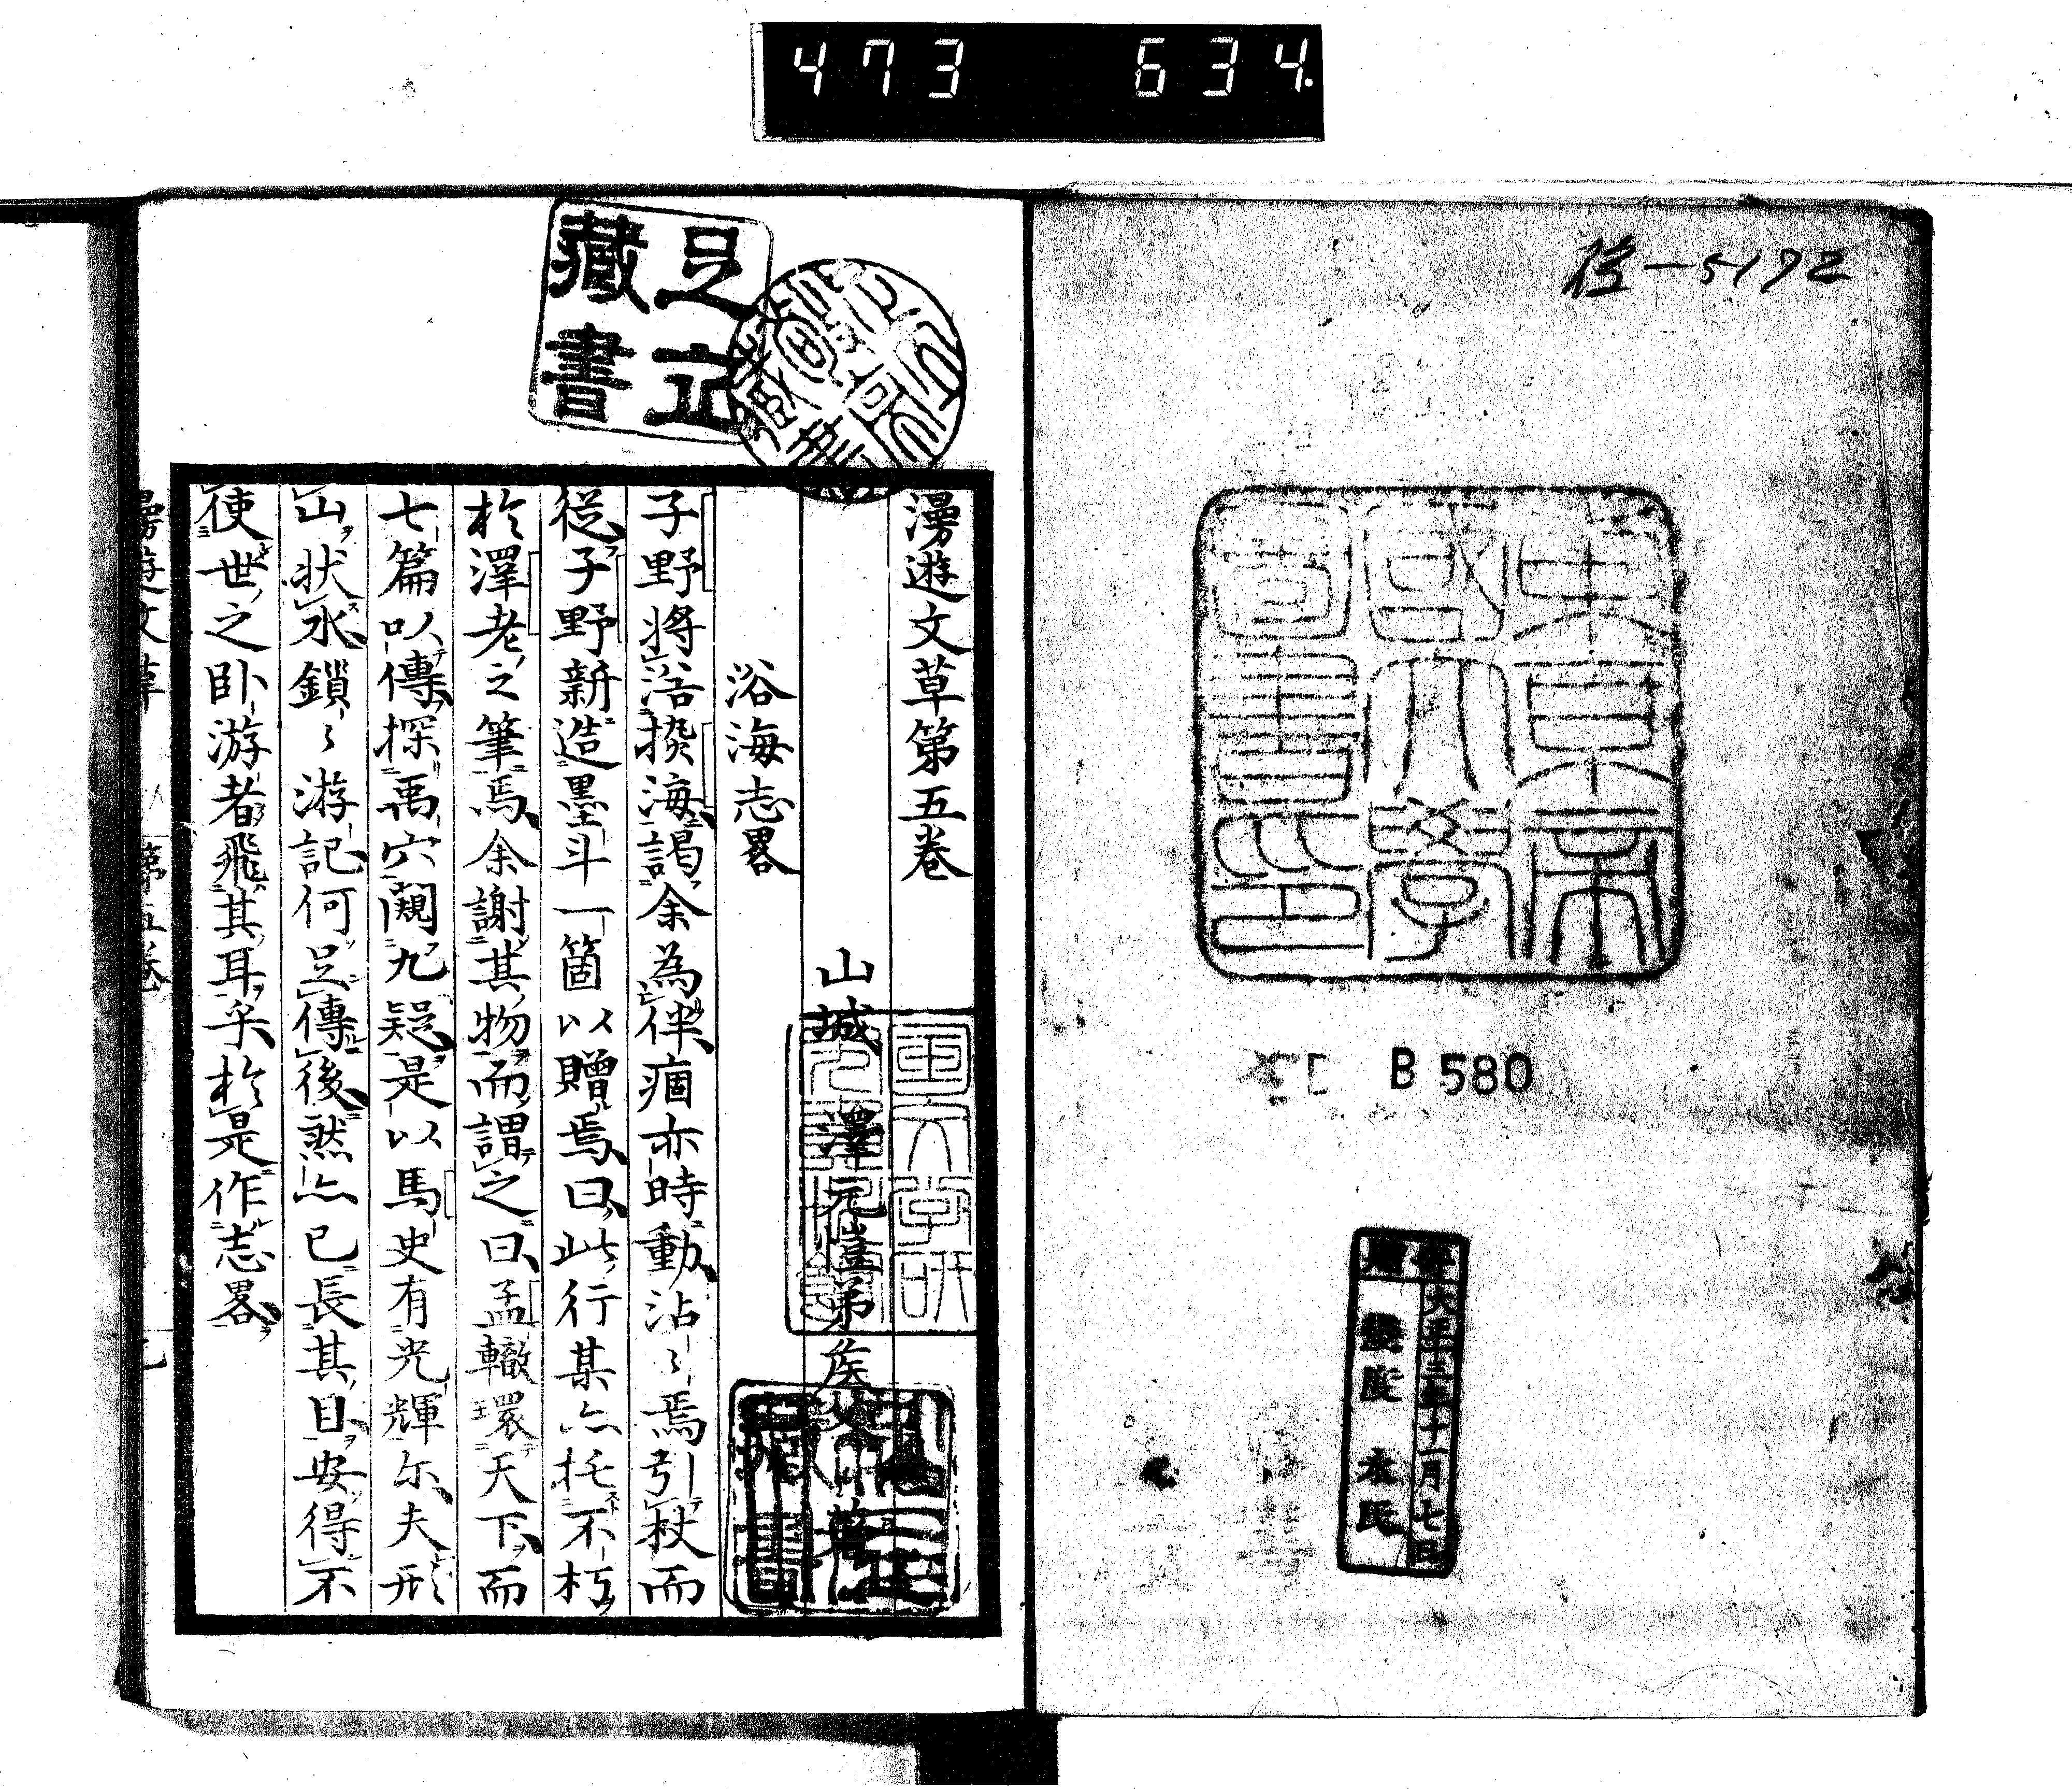 473 634
徑-5172
東京帝
國大學
圖書印
B 580
大正十三年十一月七日
足立
藏書
漫遊文草第五卷
山城 澤元愷弟侯 著
浴海志畧
子野將浴撥海謁余為伴痼亦時動沾〻焉引杖而
從子野新造墨斗一箇以贈焉曰此行某亦托不朽
於澤老之筆焉余謝其物而謂之曰孟轍環天下而
七篇以傳探禹穴闚九疑是以馬史有光輝尓夫形
山状水鎖〻游記何足傳後然亦已長其目安得不
使世之卧游者飛其耳乎於是作志畧
漫遊文草 第五卷